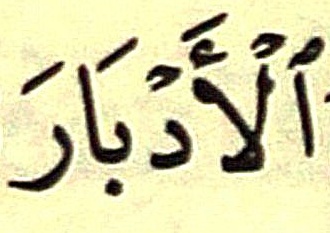 ٱلْأَدْبَارَ